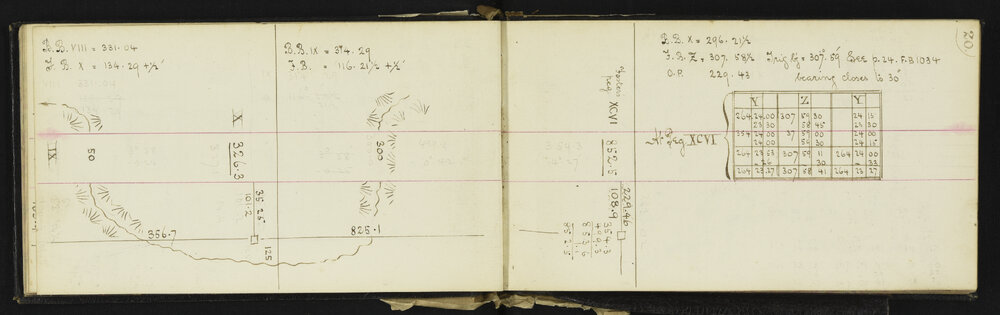 B.B. VIII = 331.04
F. B. X = 134.29 + ½'
B.B. IX = 374.29
F.B. = 116.21½ + ½'
IX
50
X
326.3
35 25
101.2
125
356.7
800
825.1
20
B.B. X = 296.21½
F.B. Z = 307.58½ Trig bg = 307° 59' See p. 24. F.B 1034
O.P. 229.43 bearing closes to 30"
peg XCVI
852.5
229.46
108.9
354.3
499.3
853.6
1.1
852.5
At Peg XCVI
Y Z Y
264 24 00 307 59 30 24 15
23 30 58 45 23 30
354 24 00 37 59 00 24 00
24 00 59 30 24 15
264 23 53 307 59 11 264 24 00
- 26 - 30 - 33
264 23 27 307 58 41 264 23 27